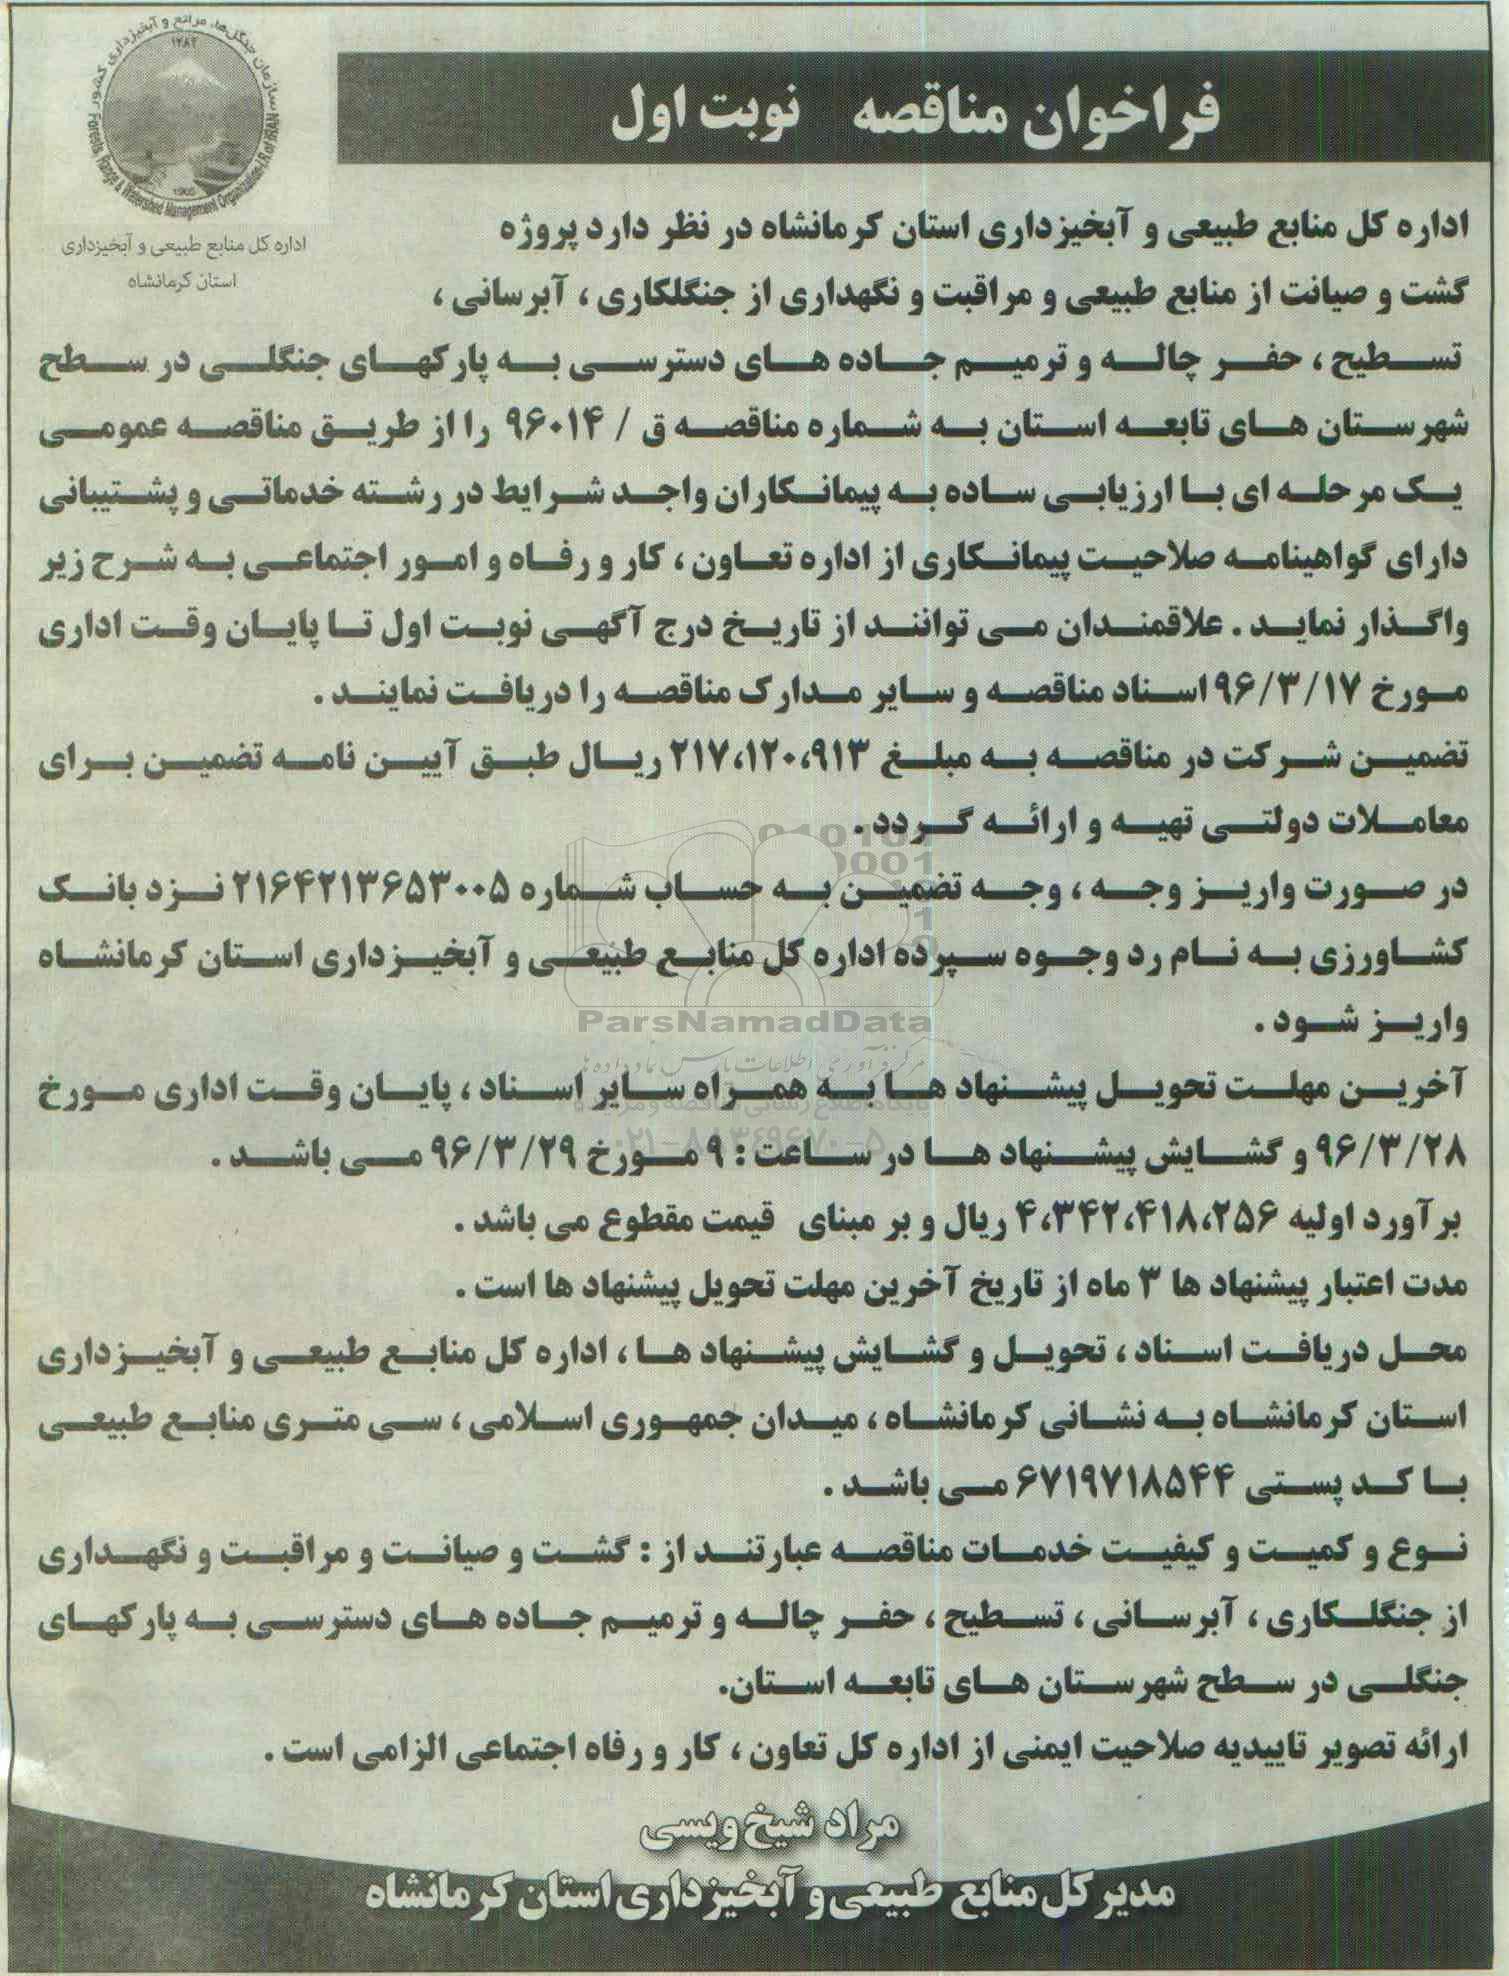 سازمان جنگل‌ها، مراتع و آبخیزداری کشور
۱۲۸۴
1905
Forests, Range & Watershed Management Organization-I.R of IRAN
اداره کل منابع طبیعی و آبخیزداری
استان کرمانشاه
فراخوان مناقصه نوبت اول
اداره کل منابع طبیعی و آبخیزداری استان کرمانشاه در نظر دارد پروژه
گشت و صیانت از منابع طبیعی و مراقبت و نگهداری از جنگلکاری ، آبرسانی ،
تسطیح ، حفر چاله و ترمیم جاده های دسترسی به پارکهای جنگلی در سطح
شهرستان های تابعه استان به شماره مناقصه ق / ۹۶۰۱۴ را از طریق مناقصه عمومی
یک مرحله ای با ارزیابی ساده به پیمانکاران واجد شرایط در رشته خدماتی و پشتیبانی
دارای گواهینامه صلاحیت پیمانکاری از اداره تعاون ، کار و رفاه و امور اجتماعی به شرح زیر
واگذار نماید . علاقمندان می توانند از تاریخ درج آگهی نوبت اول تا پایان وقت اداری
مورخ ۹۶/۳/۱۷ اسناد مناقصه و سایر مدارک مناقصه را دریافت نمایند .
تضمین شرکت در مناقصه به مبلغ ۲۱۷،۱۲۰،۹۱۳ ریال طبق آیین نامه تضمین برای
معاملات دولتی تهیه و ارائه گردد .
در صورت واریز وجه ، وجه تضمین به حساب شماره ۲۱۶۴۲۱۳۶۵۳۰۰۵ نزد بانک
کشاورزی به نام رد وجوه سپرده اداره کل منابع طبیعی و آبخیزداری استان کرمانشاه
واریز شود .
ParsNamadData
مرکز فرآوری اطلاعات پارس نماد داده ها
آخرین مهلت تحویل پیشنهاد ها به همراه سایر اسناد ، پایان وقت اداری مورخ
۰۲۱-۸۸۳۴۹۶۷۰-۵
۹۶/۳/۲۸ و گشایش پیشنهاد ها در ساعت : ۹ مورخ ۹۶/۳/۲۹ می باشد .
برآورد اولیه ۴،۳۴۲،۴۱۸،۲۵۶ ریال و بر مبنای قیمت مقطوع می باشد .
مدت اعتبار پیشنهاد ها ۳ ماه از تاریخ آخرین مهلت تحویل پیشنهاد ها است .
محل دریافت اسناد ، تحویل و گشایش پیشنهاد ها ، اداره کل منابع طبیعی و آبخیزداری
استان کرمانشاه به نشانی کرمانشاه ، میدان جمهوری اسلامی ، سی متری منابع طبیعی
با کد پستی ۶۷۱۹۷۱۸۵۴۴ می باشد .
نوع و کمیت و کیفیت خدمات مناقصه عبارتند از : گشت و صیانت و مراقبت و نگهداری
از جنگلکاری ، آبرسانی ، تسطیح ، حفر چاله و ترمیم جاده های دسترسی به پارکهای
جنگلی در سطح شهرستان های تابعه استان.
ارائه تصویر تاییدیه صلاحیت ایمنی از اداره کل تعاون ، کار و رفاه اجتماعی الزامی است .
مراد شیخ ویسی
مدیر کل منابع طبیعی و آبخیزداری استان کرمانشاه